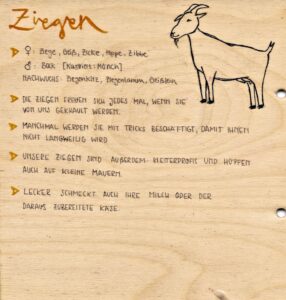 Ziegen
♀: Ziege, Geiß, Zicke, Hippe, Zibbe
♂: Bock [Kastriert: Mönch]
NACHWUCHS: Ziegenkitz, Ziegenlamm, Geißlein
DIE ZIEGEN FREUEN SICH JEDES MAL, WENN SIE
VON UNS GEKRAULT WERDEN.
MANCHMAL WERDEN SIE MIT TRICKS BESCHÄFTIGT, DAMIT IHNEN
NICHT LANGWEILIG WIRD
UNSERE ZIEGEN SIND AUßERDEM KLETTERPROFIS UND HÜPFEN
AUCH AUF KLEINE MAUERN.
LECKER SCHMECKT AUCH IHRE MILCH ODER DER
DARAUS ZUBEREITETE KÄSE.